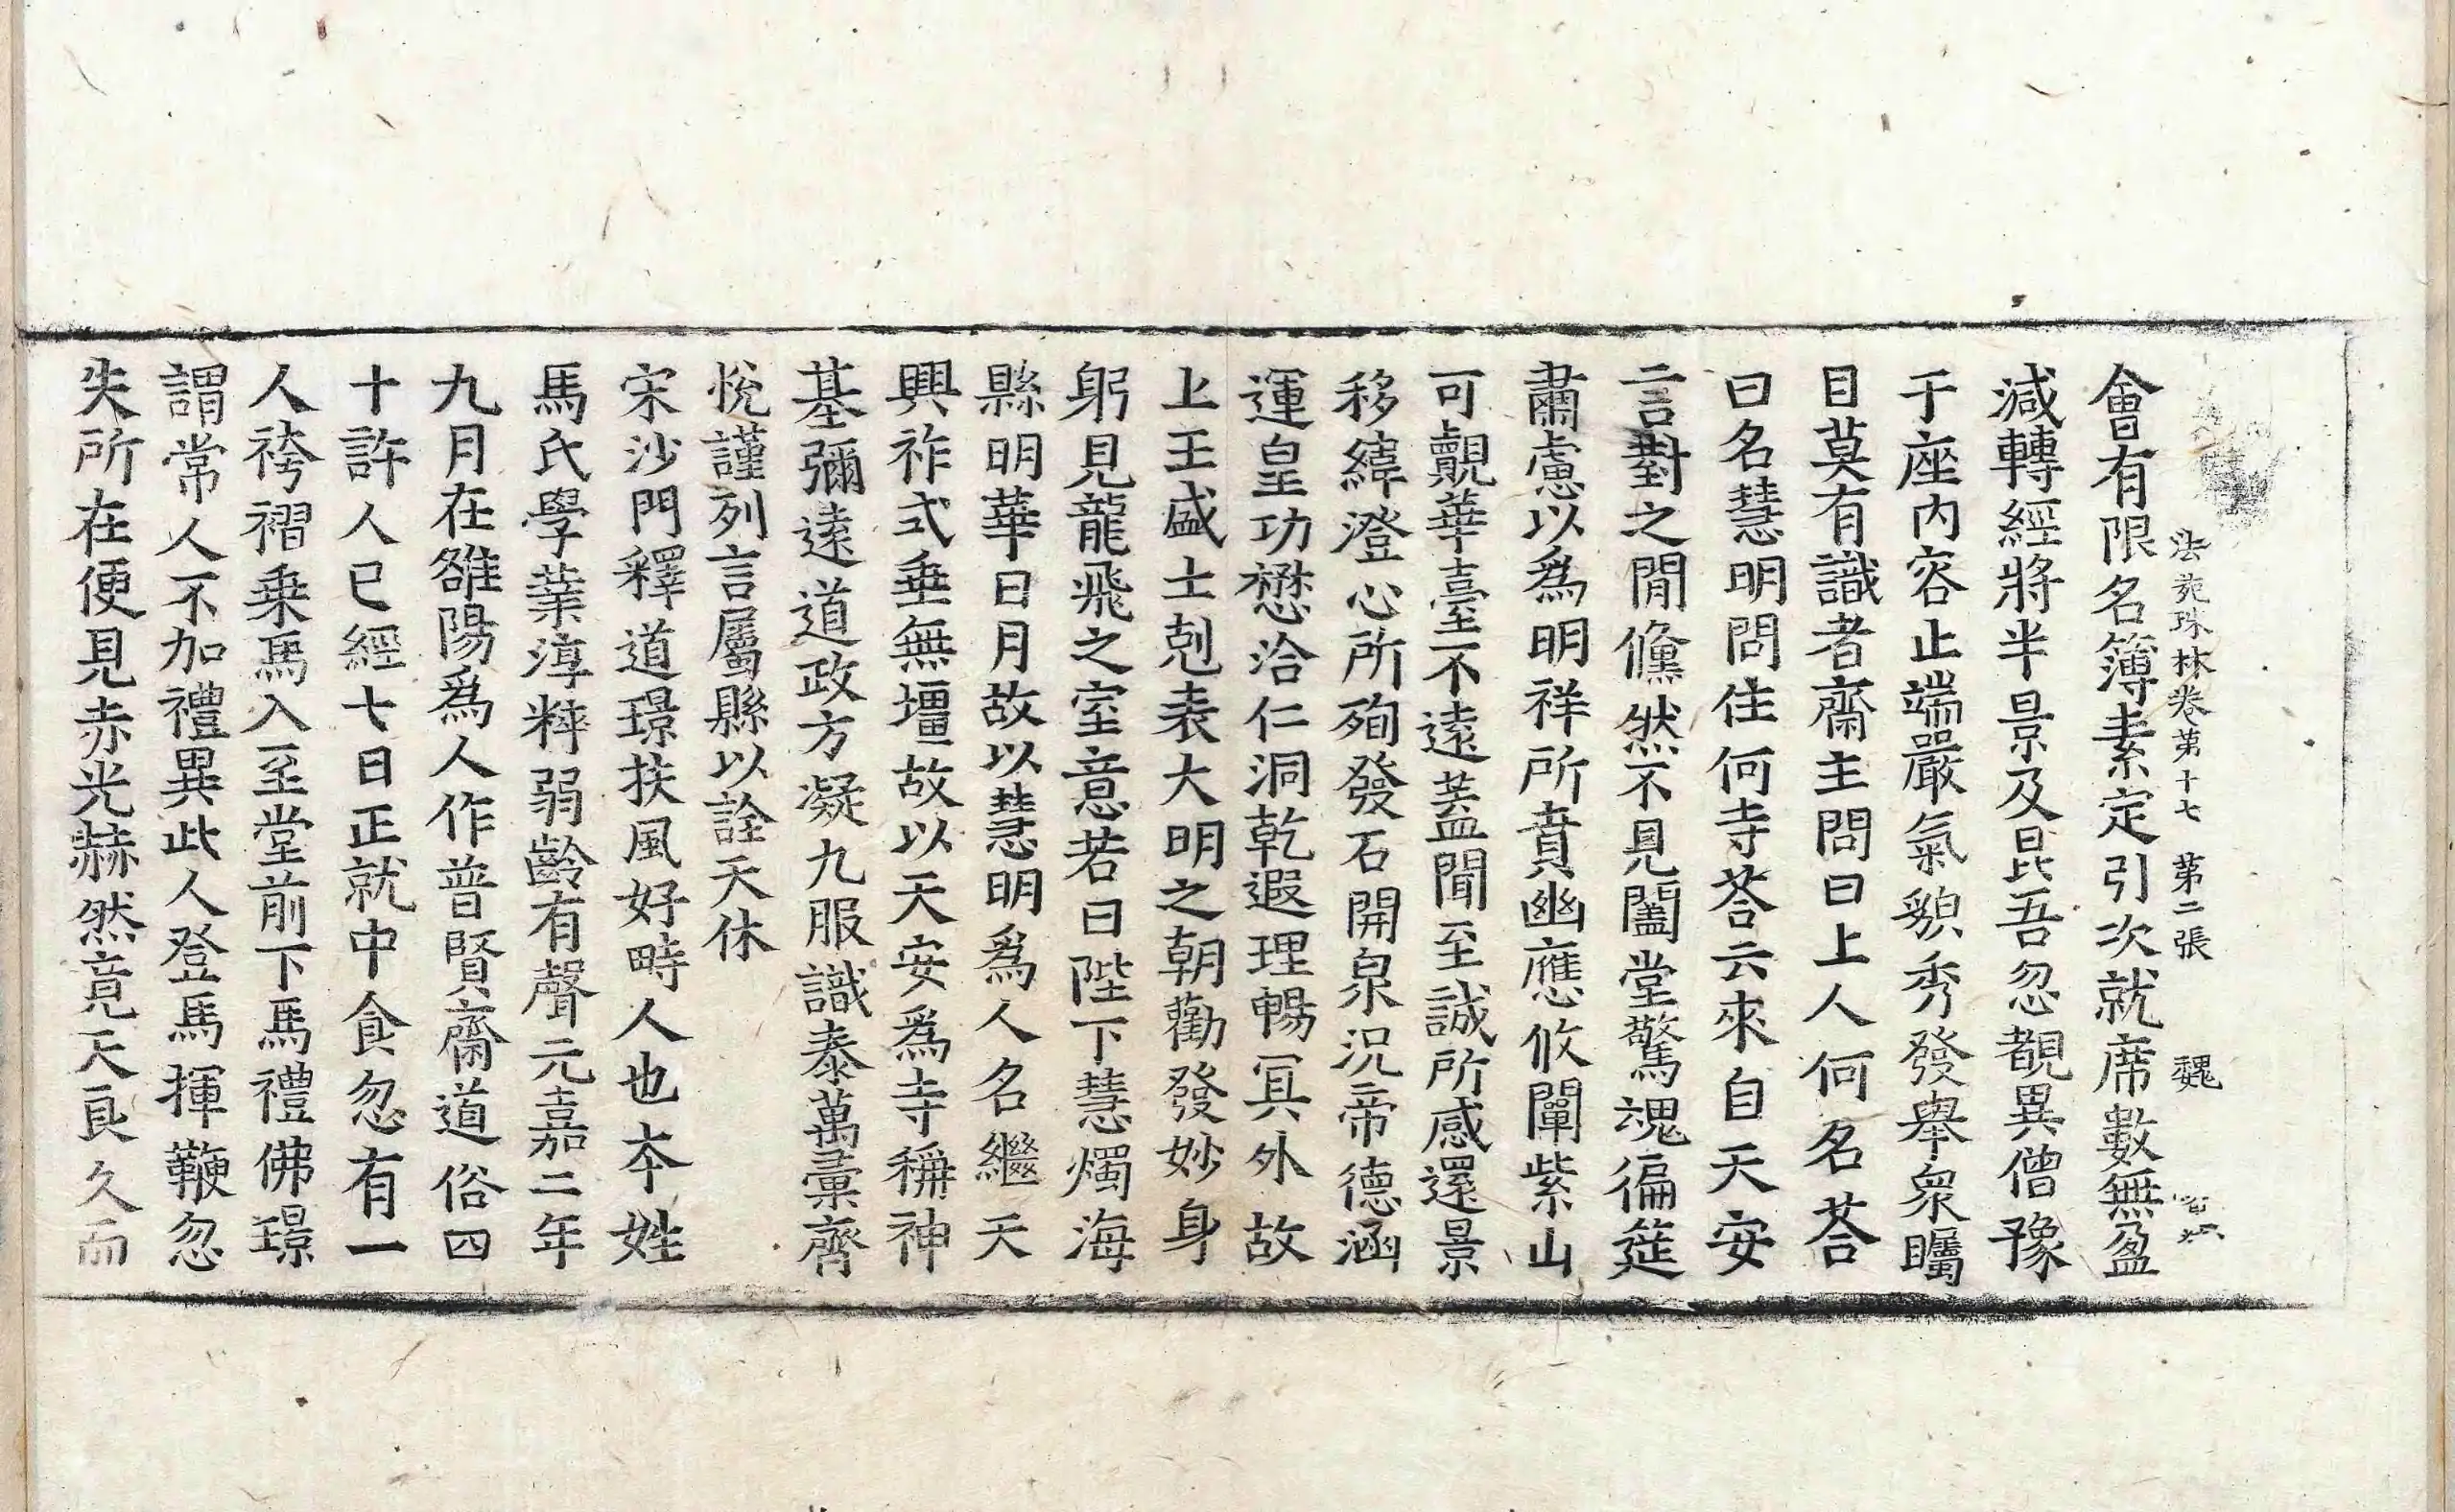 法苑珠林卷第十七 第二張 魏
會有限名簿素定引次就席數無盈
減轉經將半景及昆吾忽覩異僧豫
于座內容止端嚴氣貌秀發舉衆矚
目莫有識者齋主問曰上人何名荅
曰名慧明問住何寺荅云來自天安
言對之閒儵然不見闔堂驚魂徧筵
肅慮以爲明祥所賁幽應攸闡紫山
可覿華臺不遠葢聞至誠所感還景
移緯澄心所殉發石開泉況帝德涵
運皇功懋洽仁洞乾遐理暢冥外故
上王盛士剋表大明之朝勸發妙身
躬見龍飛之室意若曰陛下慧燭海
縣明華日月故以慧明爲人名繼天
興祚式垂無壃故以天安爲寺稱神
基彌遠道政方凝九服識泰萬彙齊
悅謹列言屬縣以詮天休
宋沙門釋道璟扶風好畤人也本姓
馬氏學業淳粹弱齡有聲元嘉二年
九月在雒陽爲人作普賢齋道俗四
十許人已經七日正就中食忽有一
人袴褶乗馬入至堂前下馬禮佛璟
謂常人不加禮異此人登馬揮鞭忽
失所在便見赤光赫然竟天良久而